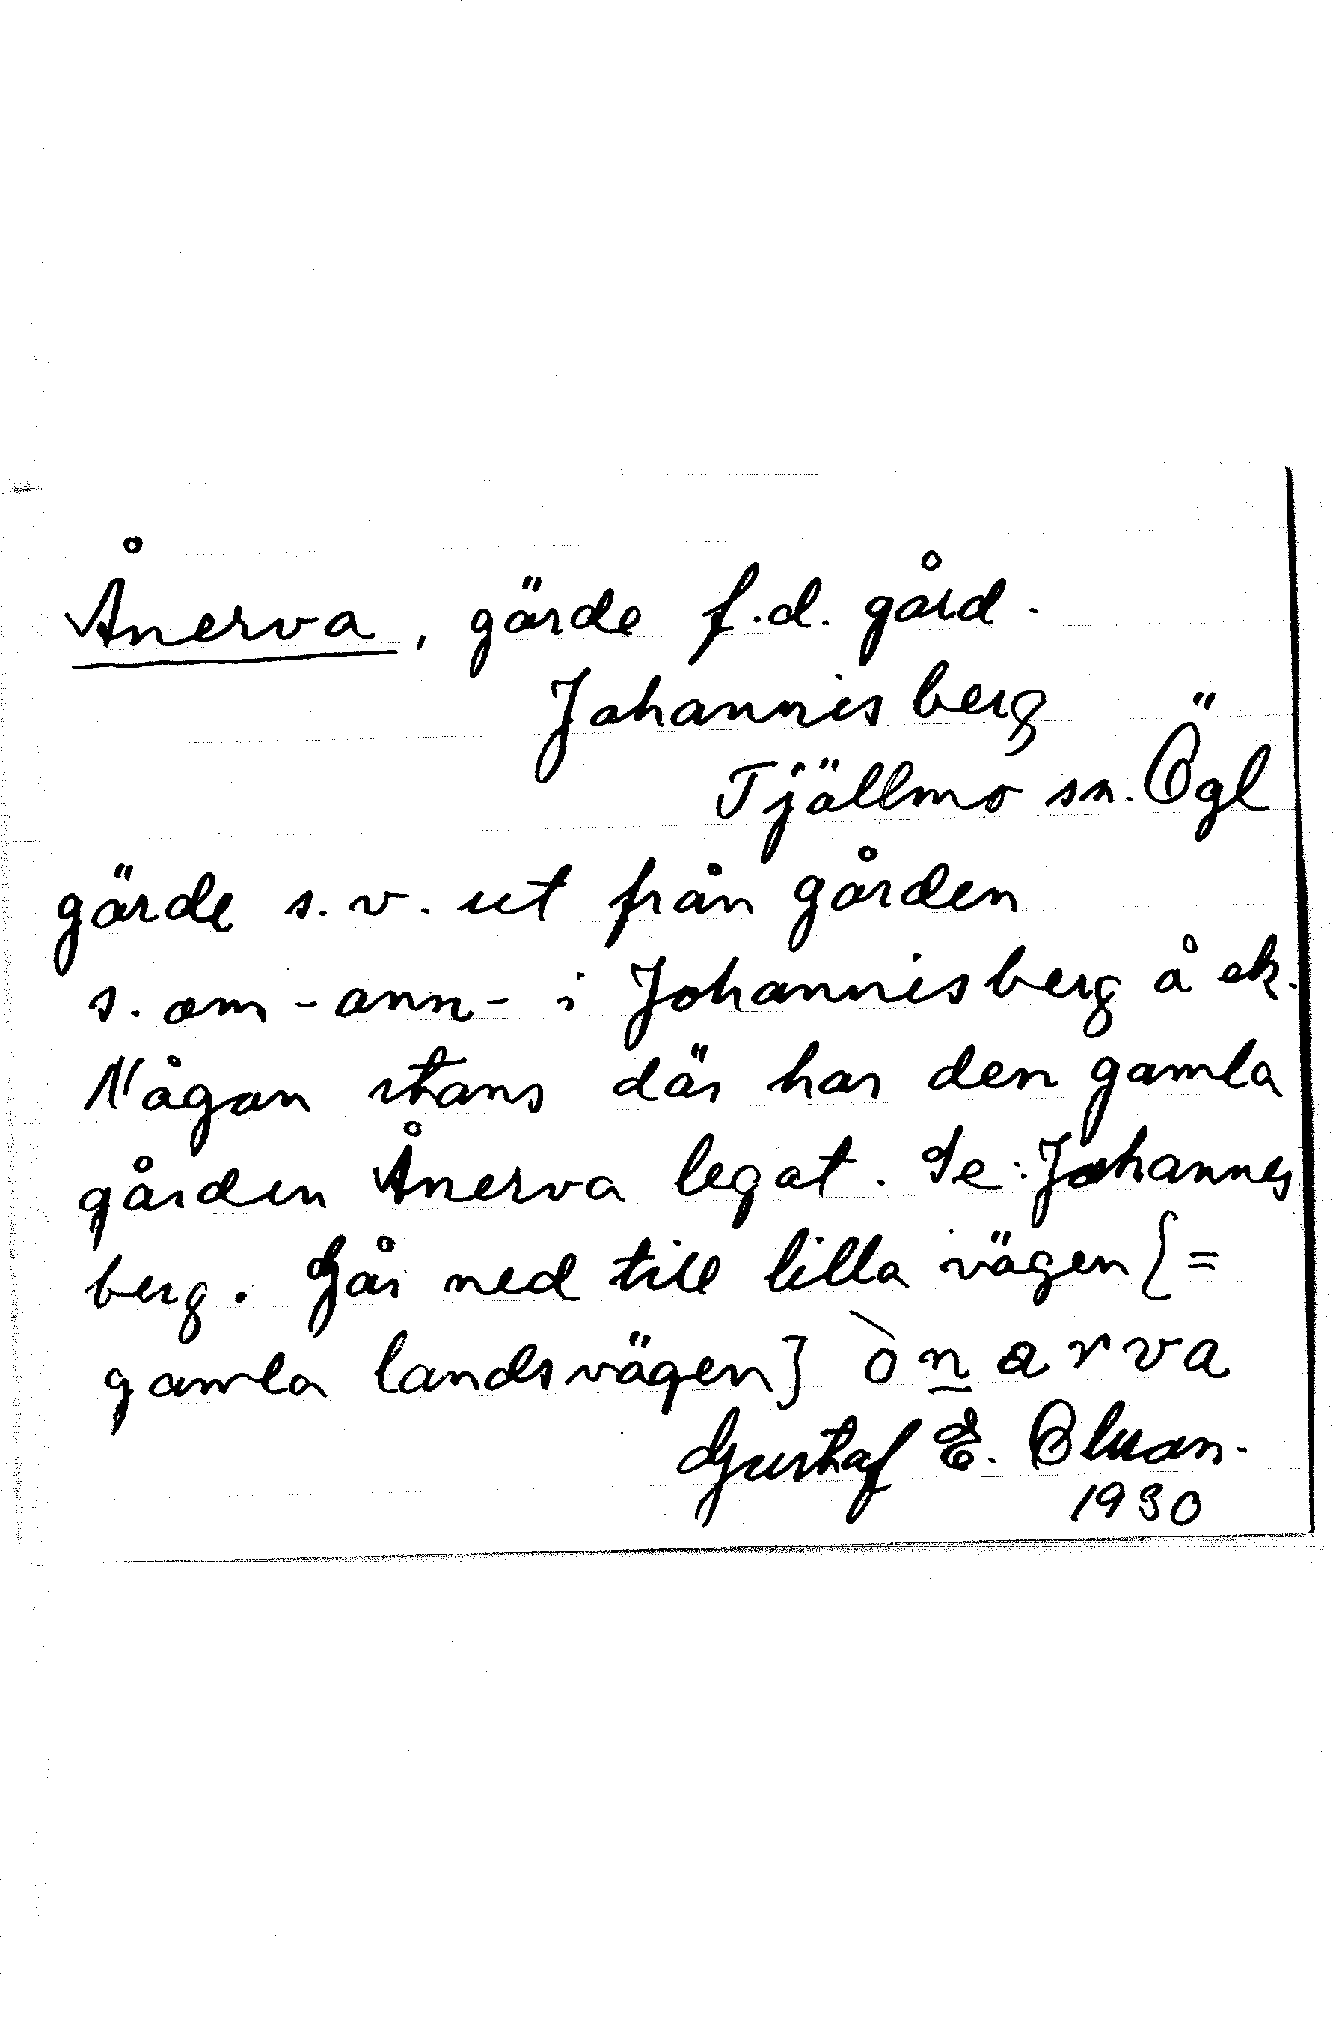 Ånerva, gärde f.d. gård.
Johannisberg
Tjällmo sn. Ögl
gärde s.v. ut från gården
s. om -ann- i Johannisberg å ek.
Någon stans där har den gamla
gården Ånerva legat. Se: Johannes
berg. Går ned till lilla vägen [=
gamla landsvägen] ònarva
Gustaf E.
1930